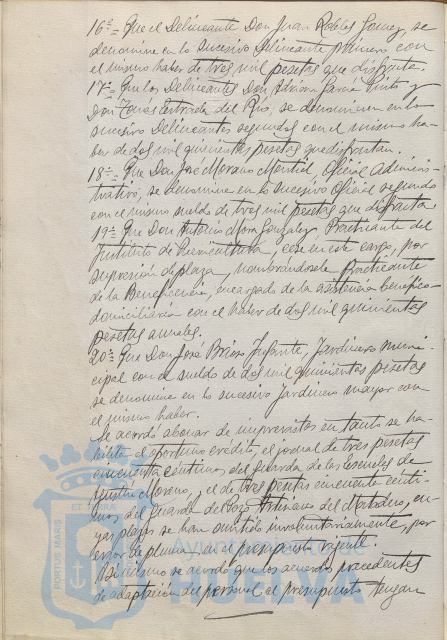 16ª= Que el Delineante Don Juan Robles Gomez, se
denomine en lo sucesivo Delineante primero con
el mismo haber de tres mil pesetas que disfruta.
17ª= Que los Delineantes Don Adriano Garcia Pinto y
Don Tomás Estrada del Rio, se denominen en lo
sucesivo Delineantes segundos con el mismo ha-
ber de dos mil quinientas pesetas que disfrutan.
18ª= Que Don José Morano Montiel Oficial Adminis-
trativo, se denomine en lo sucesivo Oficial segundo
con el mismo sueldo de tres mil pesetas que disfruta.
19ª= Que Don Antonio Mora Gonzalez, Practicante del
Instituto de Puericultura, cese en este cargo, por
supresión de plaza, nombrandosele Practicante
de la Beneficencia, encargado de la asistencia benefico
domiciliaria con el haber de dos mil quinientas
pesetas anuales.
20ª= Que Don José Brioso Infante, Jardinero muni-
cipal con el sueldo de dos mil quinientas pesetas
se denomine en lo sucesivo Jardinero mayor con
el mismo haber.
Se acordó abonar de imprevistos en tanto se ha-
bilita el oportuno crédito, el jornal de tres pesetas
cincuenta centimos del Guarda de las Escuelas de
Moreno, y el de tres pesetas cincuenta centi-
mos del Guarda del Pozo Artesiano del Matadero, cu-
yas plazas se han omitido involuntariamente, por
error de pluma, en el presupuesto vigente.
Asi mismo se acordó que los acuerdos precedentes
de adaptación del personal al presupuesto tengan
PORTUS MARIS
ET TERRÆ
Ayuntamiento de
HUELVA